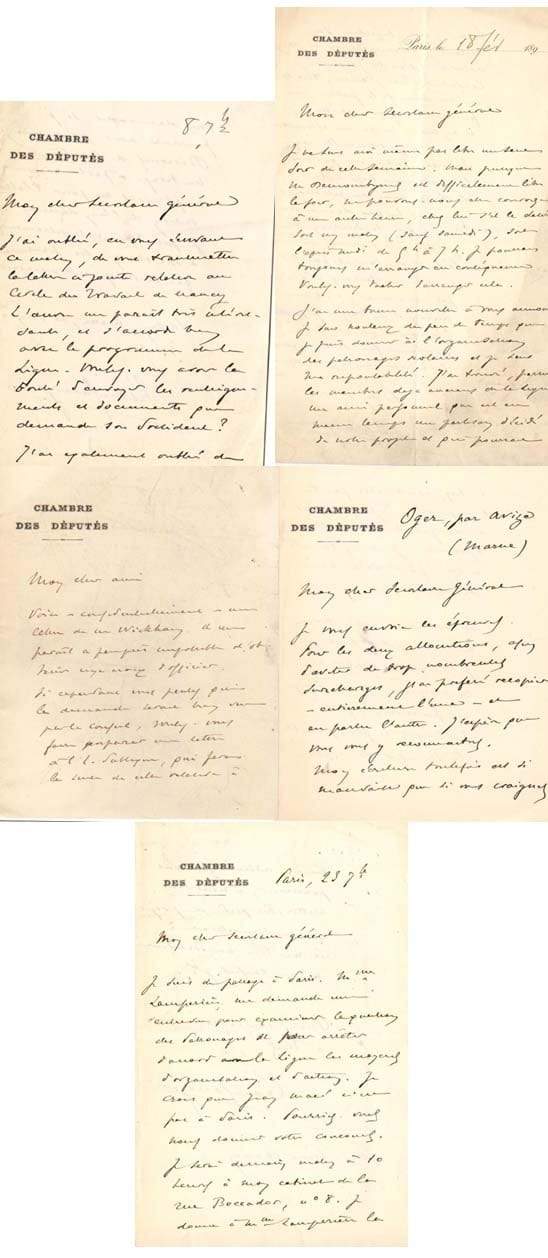 CHAMBRE
DES DÉPUTÉS
8 7bre
Mon cher Secrétaire général
J'ai oublié, en vous écrivant
ce matin, de vous transmettre
la lettre ci-jointe relative au
Cercle du Travail de Nancy
L'œuvre me paraît très intéres-
sante, et d'accord
avec le programme de la
Ligue. Voulez-vous avoir la
bonté d'envoyer les renseigne-
ments et documents que
demande son Président ?
J'ai également oublié de
CHAMBRE
DES DÉPUTÉS
Paris, le 18 fév 189
Mon cher Secrétaire général
Je ne suis moi même pas libre un seul
soir de cette semaine. Mais puisque
M est difficilement libre
le soir, ne pouvons-nous
à une autre heure, chez lui
soit un matin (sauf samedi), soit
l'après midi de 5h à 7h. Je pourrai
toujours m'arranger en conséquence
Voulez-vous tâcher d'arranger cela.
J'ai une bonne nouvelle à vous
Je suis du peu de temps que
je puis donner à l'organisation
des patronages scolaires et je sens
ma responsabilité. J'ai trouvé, parmi
les membres déjà anciens de la Ligue
un ami personnel qui est en
même temps un partisan décidé
de notre projet et qui pourrait
CHAMBRE
DES DÉPUTÉS
Mon cher ami
Voici - confidentiellement - une
lettre de Wickham. Il me
paraît à peu près impossible d'ob-
tenir une croix d'officier.
Si cependant vous pensez que
la demande
par le Conseil, voulez-vous
faire préparer une lettre
à
le sens de celle relative à
CHAMBRE
DES DÉPUTÉS
Oger, par Avize
(Marne)
Mon cher Secrétaire Général
Je vous envoie les épreuves.
Pour les deux allocutions, afin
d'éviter de trop nombreuses
surcharges, j'ai préféré recopier
- entièrement l'une - et
en partie l'autre. J'espère que
vous vous y reconnaîtrez.
Mon écriture toutefois est si
mauvaise que si vous craignez
CHAMBRE
DES DÉPUTÉS
Paris, 23 7bre
Mon cher Secrétaire général
Je suis de passage à Paris. Mme
me demande un
entretien pour examiner la question
des Patronages et pour arrêter
d'accord avec la Ligue les moyens
d'organisation et d'action. Je
crois que Jean Macé n'est
pas à Paris. Pourriez-vous
nous donner votre concours.
Je serai demain matin à 10
heures à mon cabinet de la
rue Boccador, n° 8. Je
donne à Mme la